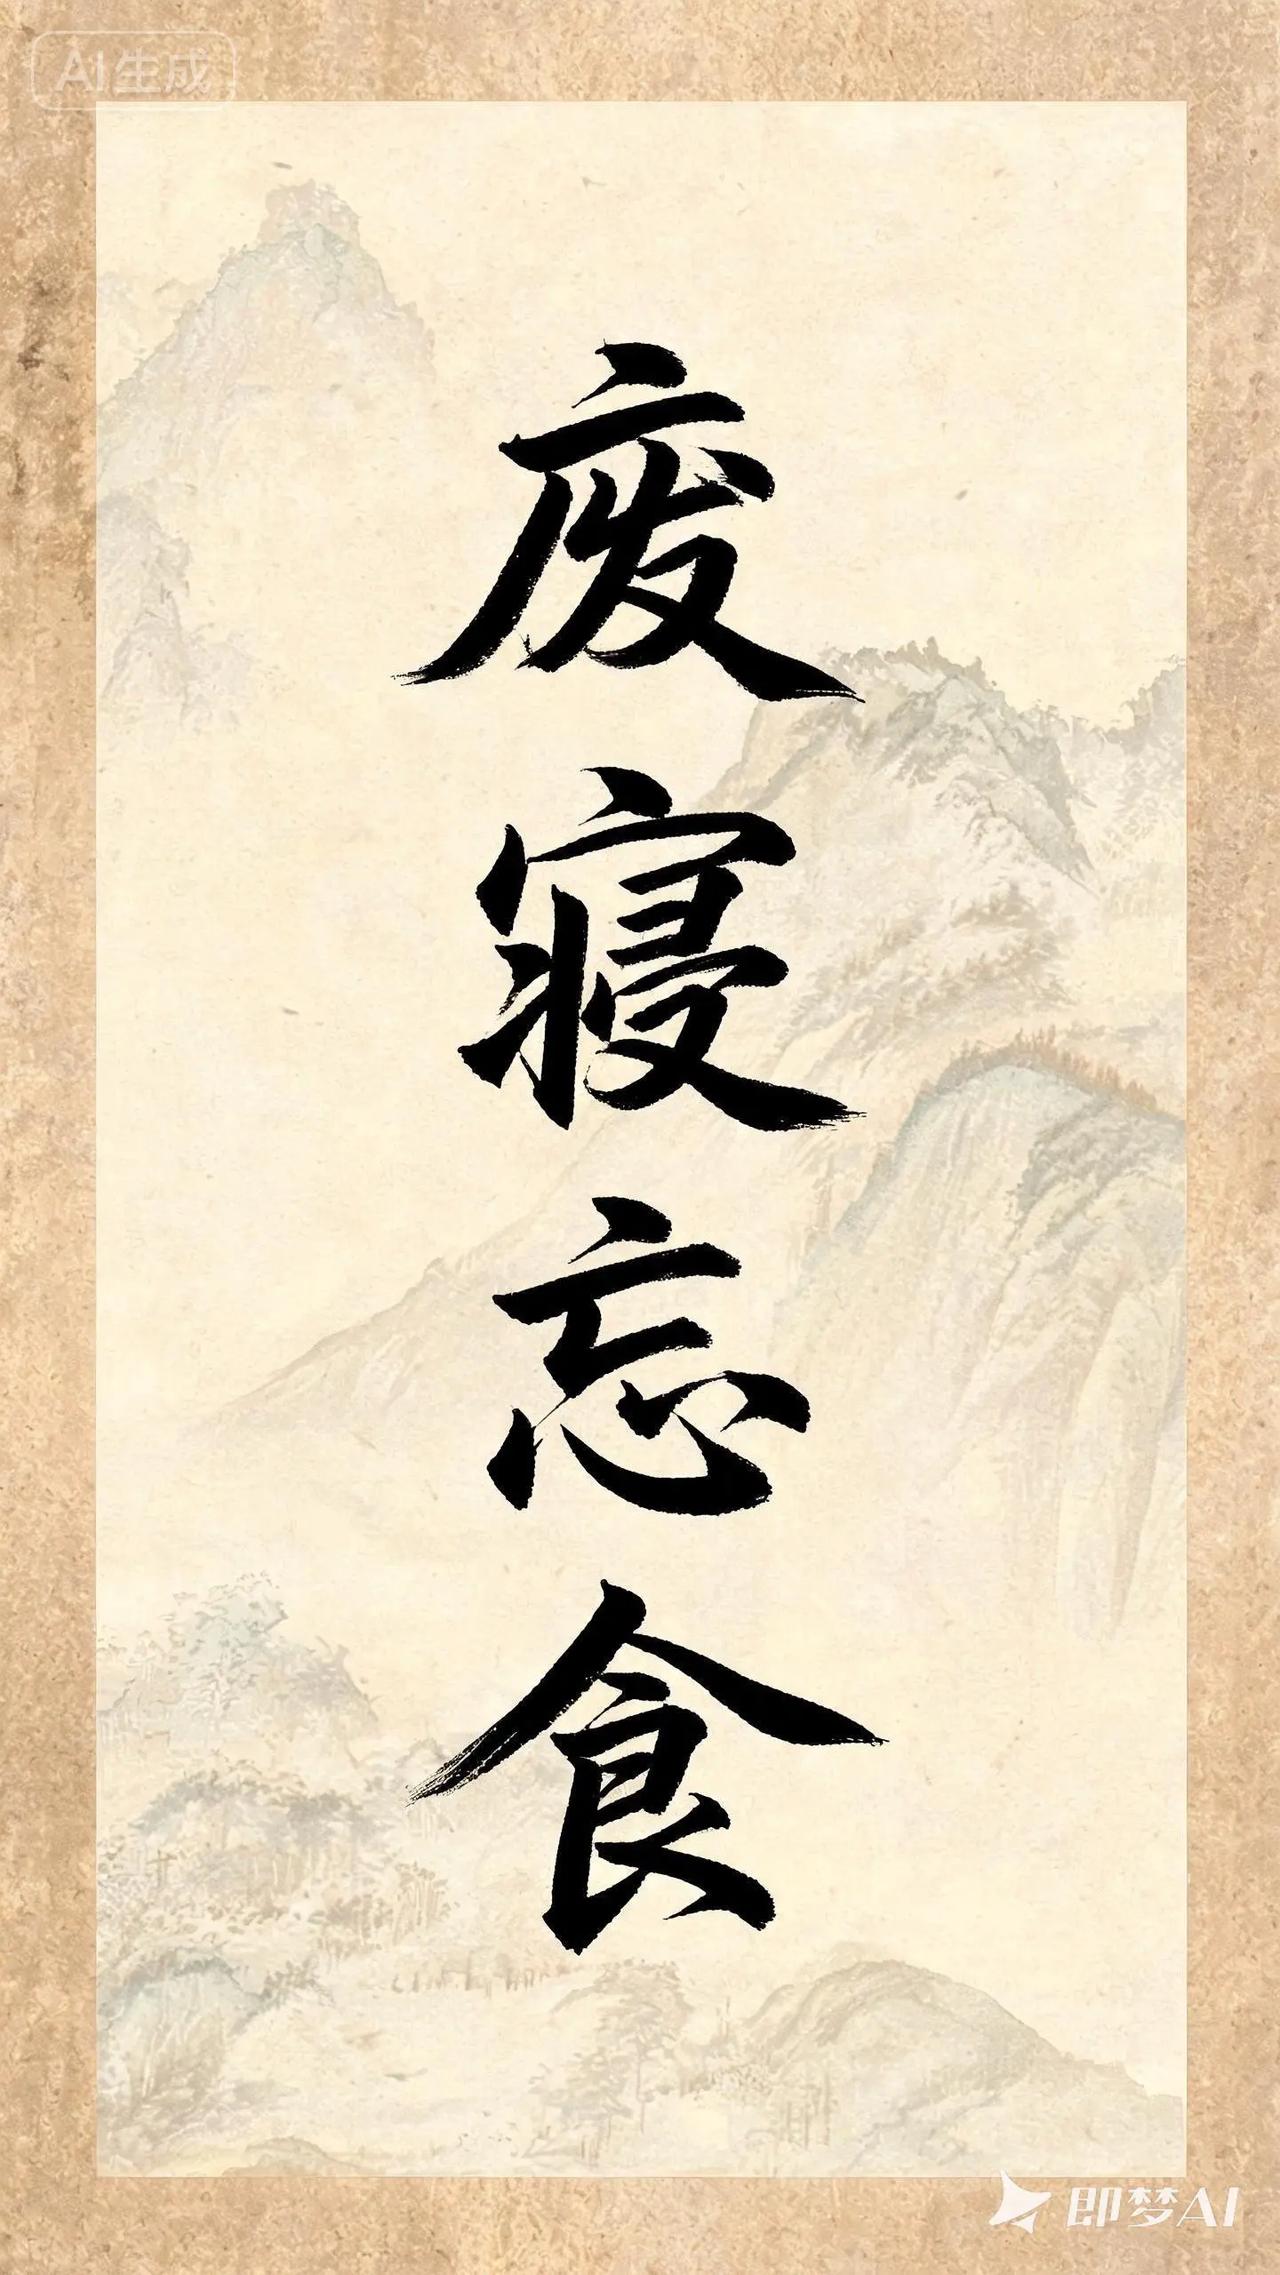 AI生成
废寝忘食
即梦AI